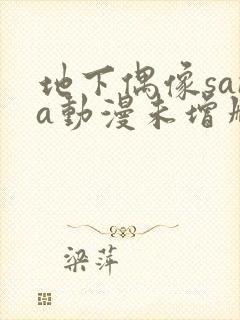 地下偶像sa
a動漫未增
梁萍